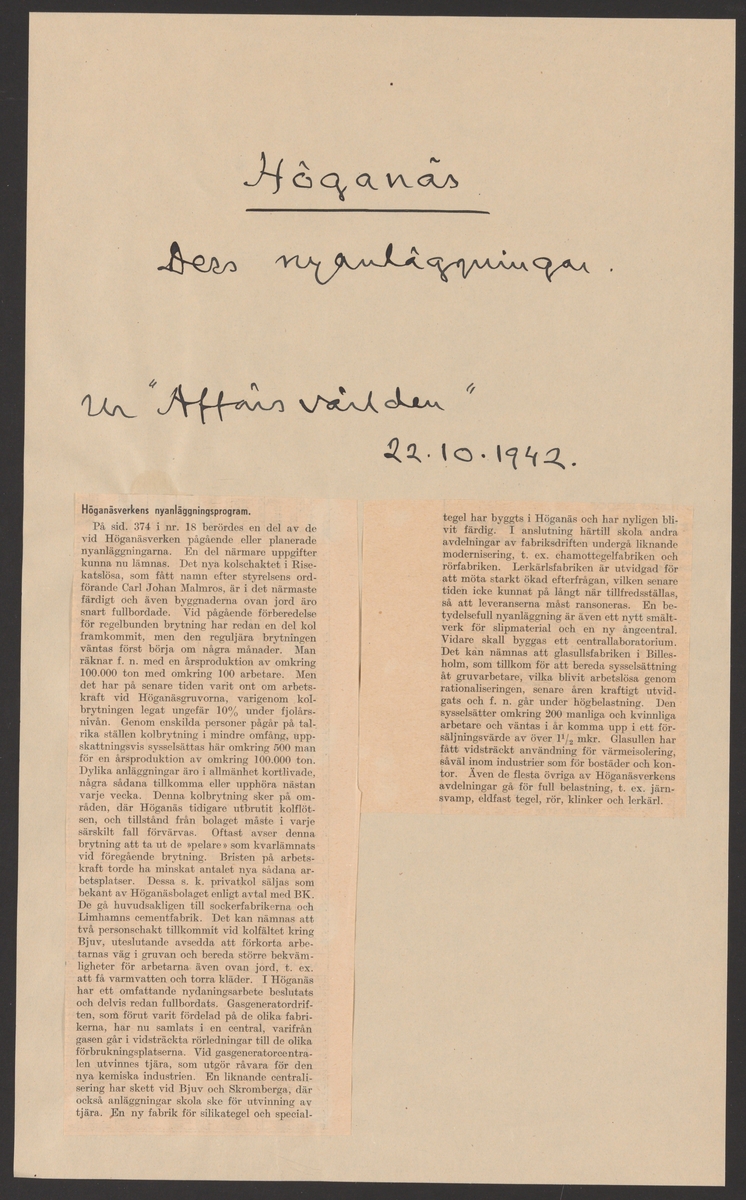 Höganäs
Dess nyanläggningar.
Ur "Affärsvärlden"
22.10.1942.
Höganäsverkens nyanläggningsprogram.
På sid. 374 i nr. 18 berördes en del av de
vid Höganäsverken pågående eller planerade
nyanläggningarna. En del närmare uppgifter
kunna nu lämnas. Det nya kolschaktet i Rise-
katslösa, som fått namn efter styrelsens ord-
förande Carl Johan Malmros, är i det närmaste
färdigt och även byggnaderna ovan jord äro
snart fullbordade. Vid pågående förberedelse
för regelbunden brytning har redan en del kol
framkommit, men den reguljära brytningen
väntas först börja om några månader. Man
räknar f. n. med en årsproduktion av omkring
100.000 ton med omkring 100 arbetare. Men
det har på senare tiden varit ont om arbets-
kraft vid Höganäsgruvorna, varigenom kol-
brytningen legat ungefär 10% under fjolårs-
nivån. Genom enskilda personer pågår på tal-
rika ställen kolbrytning i mindre omfång, upp-
skattningsvis sysselsättas här omkring 500 man
för en årsproduktion av omkring 100.000 ton.
Dylika anläggningar äro i allmänhet kortlivade,
några sådana tillkomma eller upphöra nästan
varje vecka. Denna kolbrytning sker på om-
råden, där Höganäs tidigare utbrutit kolflöt-
sen, och tillstånd från bolaget måste i varje
särskilt fall förvärvas. Oftast avser denna
brytning att ta ut de »pelare» som kvarlämnats
vid föregående brytning. Bristen på arbets-
kraft torde ha minskat antalet nya sådana ar-
betsplatser. Dessa s. k. privatkol säljas som
bekant av Höganäsbolaget enligt avtal med BK.
De gå huvudsakligen till sockerfabrikerna och
Limhamns cementfabrik. Det kan nämnas att
två personschakt tillkommit vid kolfältet kring
Bjuv, uteslutande avsedda att förkorta arbe-
tarnas väg i gruvan och bereda större bekväm-
ligheter för arbetarna även ovan jord, t. ex.
att få varmvatten och torra kläder. I Höganäs
har ett omfattande nydaningsarbete beslutats
och delvis redan fullbordats. Gasgeneratordrif-
ten, som förut varit fördelad på de olika fabri-
kerna, har nu samlats i en central, varifrån
gasen går i vidsträckta rörledningar till de olika
förbrukningsplatserna. Vid gasgeneratorcentra-
len utvinnes tjära, som utgör råvara för den
nya kemiska industrien. En liknande centrali-
sering har skett vid Bjuv och Skromberga, där
också anläggningar skola ske för utvinning av
tjära. En ny fabrik för silikategel och special-
tegel har byggts i Höganäs och har nyligen bli-
vit färdig. I anslutning härtill skola andra
avdelningar av fabriksdriften undergå liknande
modernisering, t. ex. chamottegelfabriken och
rörfabriken. Lerkärlsfabriken är utvidgad för
att möta starkt ökad efterfrågan, vilken senare
tiden icke kunnat på långt när tillfredsställas,
så att leveranserna måst ransoneras. En be-
tydelsefull nyanläggning är även ett nytt smält-
verk för slipmaterial och en ny ångcentral.
Vidare skall byggas ett centrallaboratorium.
Det kan nämnas att glasullsfabriken i Billes-
holm, som tillkom för att bereda sysselsättning
åt gruvarbetare, vilka blivit arbetslösa genom
rationaliseringen, senare åren kraftigt utvid-
gats och f. n. går under högbelastning. Den
sysselsätter omkring 200 manliga och kvinnliga
arbetare och väntas i år komma upp i ett för-
säljningsvärde av över 1½ mkr. Glasullen har
fått vidsträckt användning för värmeisolering,
såväl inom industrier som för bostäder och kon-
tor. Även de flesta övriga av Höganäsverkens
avdelningar gå för full belastning, t. ex. järn-
svamp, eldfast tegel, rör, klinker och lerkärl.